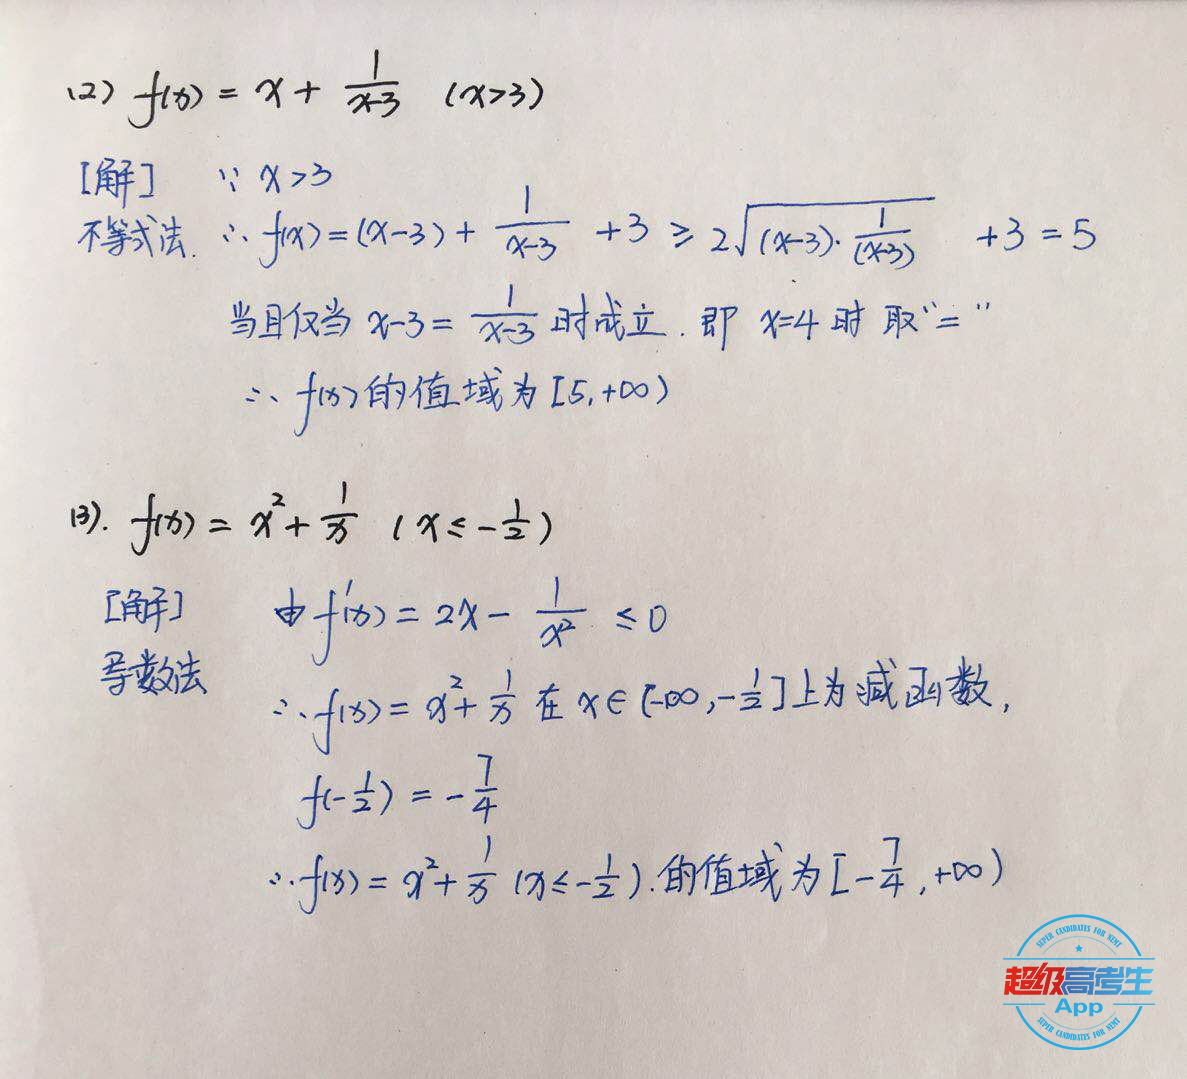 (2) f(x) = x + 1/(x-3) (x>3)
[解] ∵ x>3
不等式法. ∴ f(x) = (x-3) + 1/(x-3) +3 ≥ 2√((x-3)·1/(x-3)) +3 = 5
当且仅当 x-3 = 1/(x-3) 时成立. 即 x=4 时 取“=”
∴ f(x) 的值域为 [5, +∞)
(3). f(x) = x² + 1/x (x ≤ -1/2)
[解] 由 f'(x) = 2x - 1/x² ≤ 0
导数法
∴ f(x) = x² + 1/x 在 x∈[-∞, -1/2] 上为减函数,
f(-1/2) = -7/4
∴ f(x) = x² + 1/x (x ≤ -1/2). 的值域为 [-7/4, +∞)
SUPER CANDIDATES FOR NEMT
超级高考生
App
SUPER CANDIDATES FOR NEMT